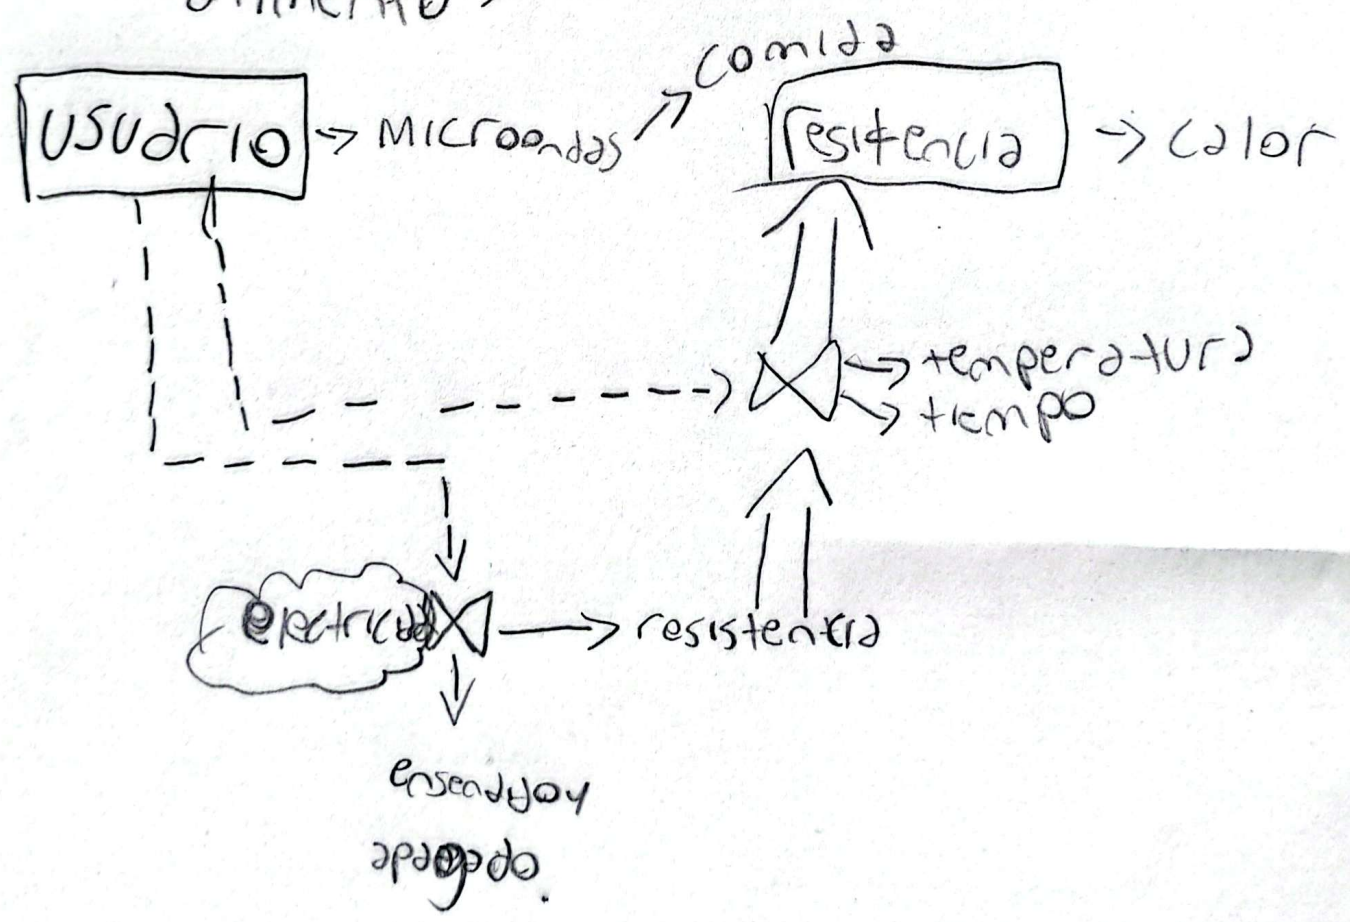 comida
usuario → microondas
resistencia → calor
temperatura
tiempo
electricidad
resistencia
ensendido y
apagado.